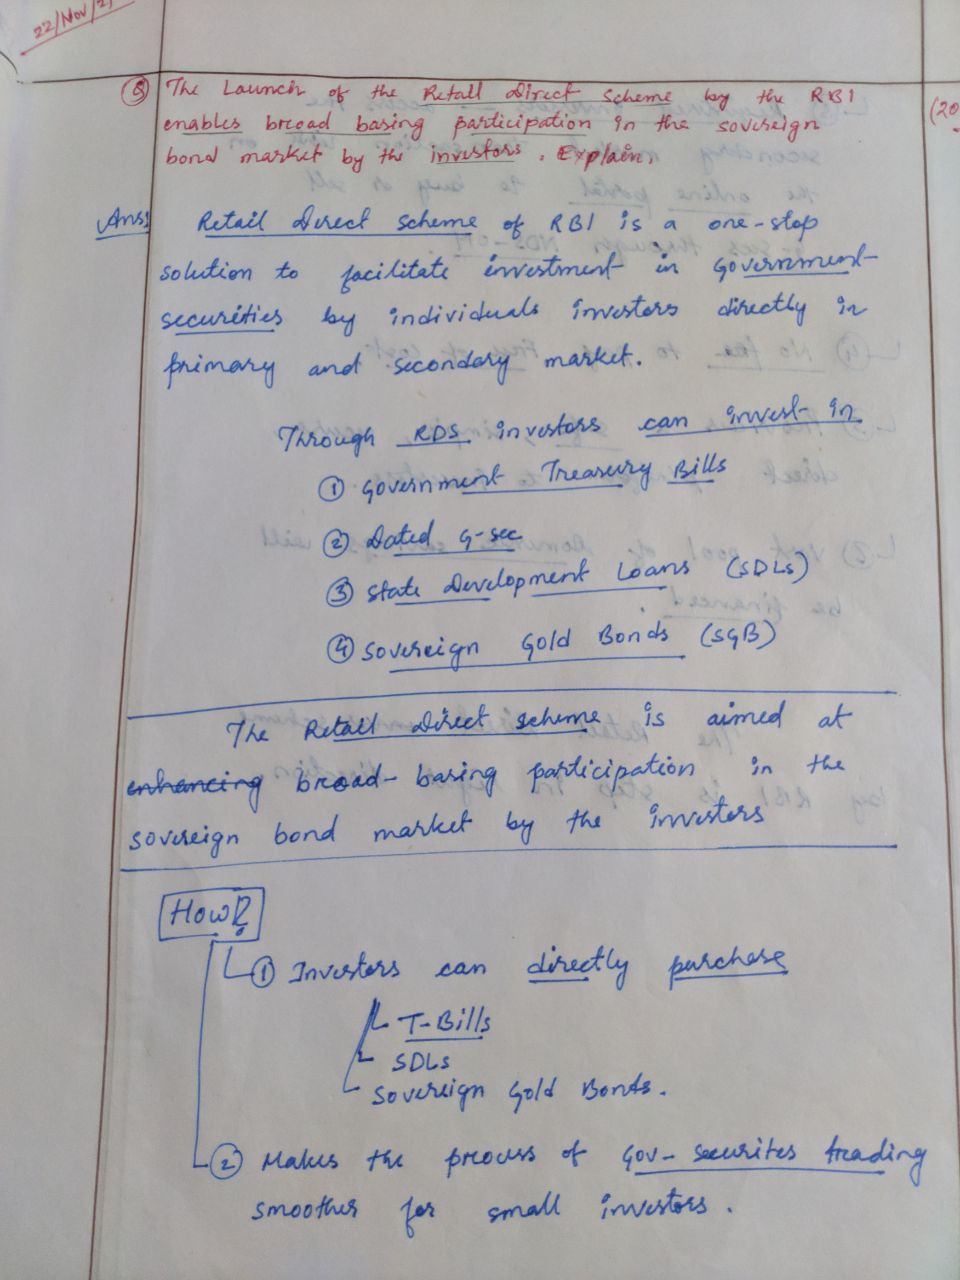 22/Nov/21
Q The Launch of the Retail Direct Scheme by the RBI (20
enables broad basing participation in the sovereign
bond market by the investors. Explain.
Ans: Retail direct scheme of RBI is a one-stop
solution to facilitate investment in Government
securities by individuals investors directly in
primary and secondary market.
Through RDS investors can invest in
① Government Treasury Bills
② Dated G-sec
③ State Development Loans (SDLs)
④ Sovereign Gold Bonds (SGB)
The Retail direct scheme is aimed at
enhancing broad-basing participation in the
sovereign bond market by the investors
How?
① Investors can directly purchase
T-Bills
SDLs
Sovereign Gold Bonds.
② Makes the process of Gov-securites trading
smoother for small investors.